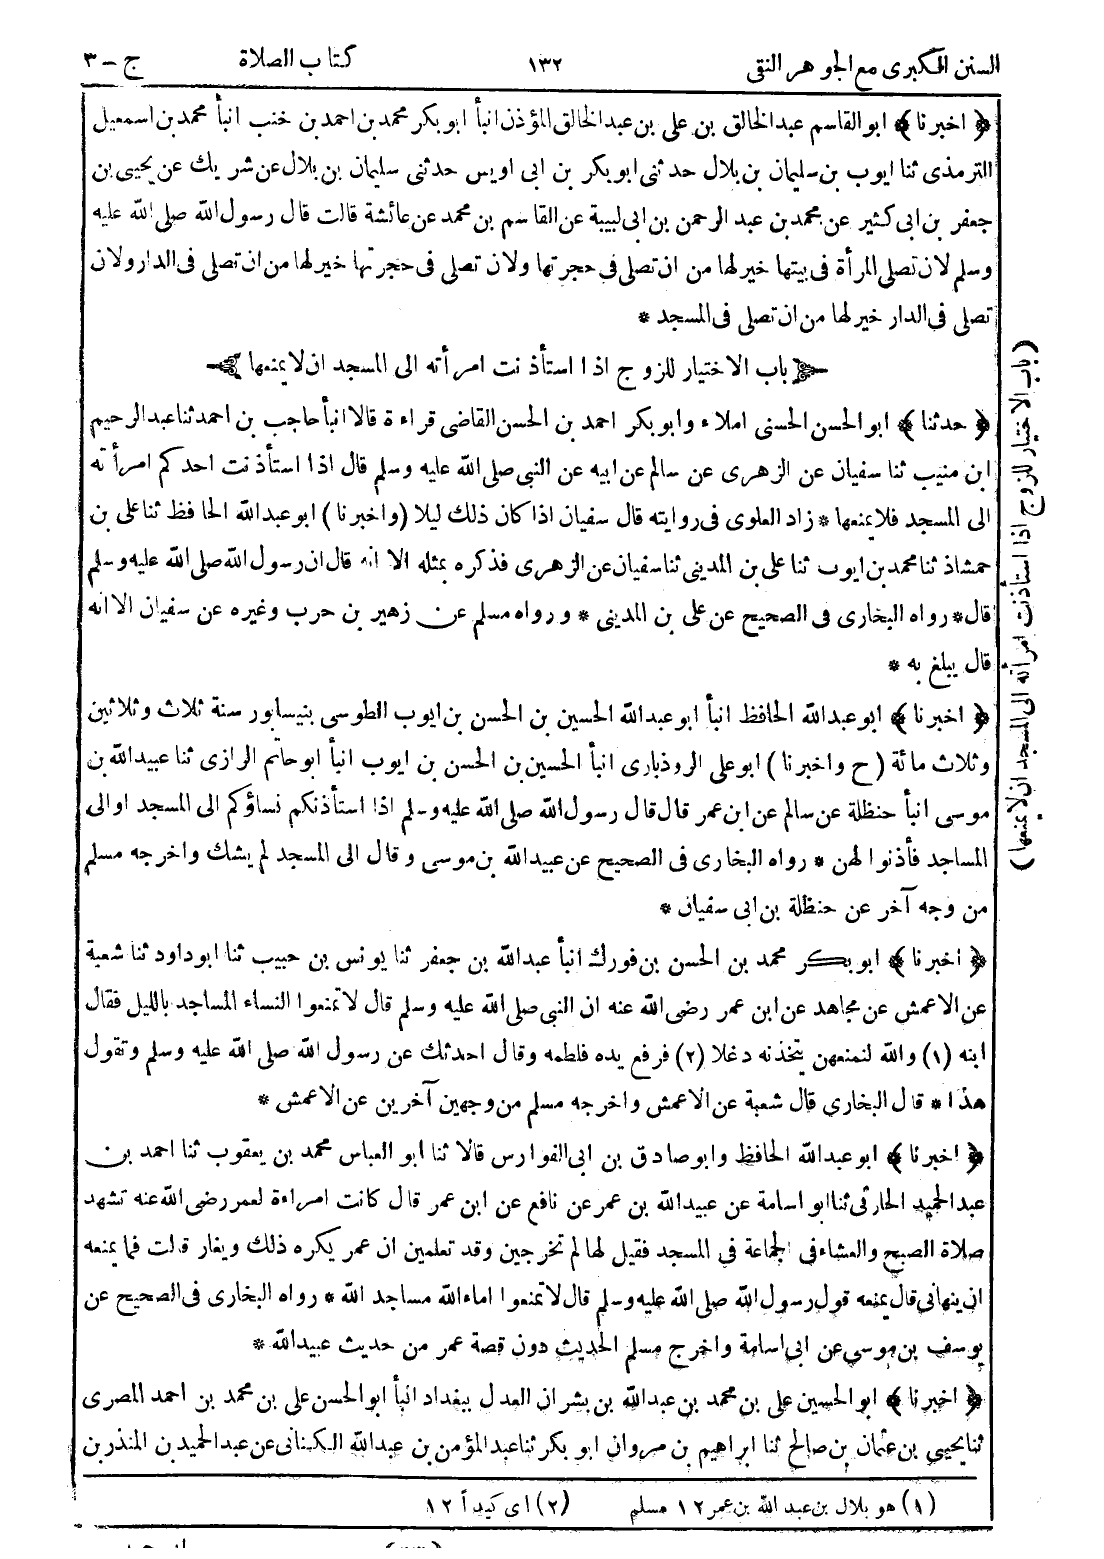 السنن الكبرى مع الجوهر النقي ١٣٢ كتاب الصلاة ج - ٣
﴿ اخبرنا ﴾ ابو القاسم عبد الخالق بن علي بن عبد الخالق المؤذن انبأ ابو بكر محمد بن احمد بن خنب انبأ محمد بن اسمعيل
الترمذى ثنا ايوب بن سليمان بن بلال حدثنى ابو بكر بن ابى اويس حدثنى سليمان بن بلال عن شريك عن يحيى بن
جعفر بن ابى كثير عن محمد بن عبد الرحمن بن ابى لبيبة عن القاسم بن محمد عن عائشة قالت قال رسول الله صلى الله عليه
وسلم لان تصلى المرأة فى بيتها خير لها من ان تصلى فى حجرتها ولان تصلى فى حجرتها خير لها من ان تصلى فى الدار ولان
تصلى فى الدار خير لها من ان تصلى فى المسجد *
باب الاختيار للزوج اذا استأذنت امرأته الى المسجد ان لا يمنعها
﴿ حدثنا ﴾ ابو الحسن الحسنى املاء وابو بكر احمد بن الحسن القاضى قراءة قالا انبأ حاجب بن احمد ثنا عبد الرحيم
ابن منيب ثنا سفيان عن الزهرى عن سالم عن ابيه عن النبى صلى الله عليه وسلم قال اذا استأذنت احدكم امرأته
الى المسجد فلا يمنعها * زاد العلوى فى روايته قال سفيان اذا كان ذلك ليلا (واخبرنا) ابو عبد الله الحافظ ثنا على بن
حمشاذ ثنا محمد بن ايوب ثنا على بن المدينى ثنا سفيان عن الزهرى فذكره بمثله الا انه قال ان رسول الله صلى الله عليه وسلم
قال * رواه البخارى فى الصحيح عن على بن المدينى * ورواه مسلم عن زهير بن حرب وغيره عن سفيان الا انه
قال يبلغ به *
﴿ اخبرنا ﴾ ابو عبد الله الحافظ انبأ ابو عبد الله الحسين بن الحسن بن ايوب الطوسى بنيسابور سنة ثلاث وثلاثين
وثلاث مائة (ح واخبرنا) ابو على الروذبارى انبأ الحسين بن الحسن بن ايوب انبأ ابو حاتم الرازى ثنا عبيد الله بن
موسى انبأ حنظلة عن سالم عن ابن عمر قال قال رسول الله صلى الله عليه وسلم اذا استأذنكم نساؤكم الى المسجد او الى
المساجد فأذنوا لهن * رواه البخارى فى الصحيح عن عبيد الله بن موسى وقال الى المسجد لم يشك واخرجه مسلم
من وجه آخر عن حنظلة بن ابى سفيان *
﴿ اخبرنا ﴾ ابو بكر محمد بن الحسن بن فورك انبأ عبد الله بن جعفر ثنا يونس بن حبيب ثنا ابو داود ثنا شعبة
عن الاعمش عن مجاهد عن ابن عمر رضى الله عنه ان النبى صلى الله عليه وسلم قال لا تمنعوا النساء المساجد بالليل فقال
ابنه (١) والله لنمنعهن يتخذنه دغلا (٢) فرفع يده فلطمه وقال احدثك عن رسول الله صلى الله عليه وسلم وتقول
هذا * قال البخاري قال شعبة عن الاعمش واخرجه مسلم من وجهين آخرين عن الاعمش *
﴿ اخبرنا ﴾ ابو عبد الله الحافظ وابو صادق بن ابى الفوارس قالا ثنا ابو العباس محمد بن يعقوب ثنا احمد بن
عبد الحميد الحارثى ثنا ابو اسامة عن عبيد الله بن عمر عن نافع عن ابن عمر قال كانت امراءة لعمر رضى الله عنه تشهد
صلاة الصبح والعشاء فى الجماعة فى المسجد فقيل لها لم تخرجين وقد تعلمين ان عمر يكره ذلك ويغار قالت فما يمنعه
ان ينهانى قال يمنعه قول رسول الله صلى الله عليه وسلم قال لا تمنعوا اماء الله مساجد الله * رواه البخارى فى الصحيح عن
يوسف بن موسى عن ابى اسامة واخرج مسلم الحديث دون قصة عمر من حديث عبيد الله *
﴿ اخبرنا ﴾ ابو الحسين على بن محمد بن عبد الله بن بشران العدل ببغداد انبأ ابو الحسن على بن محمد بن احمد المصرى
ثنا يحيى بن عثمان بن صالح ثنا ابراهيم بن مروان ابو بكر ثنا عبد المؤمن بن عبد الله الكنانى عن عبد الحميد بن المنذر بن
(١) هو بلال بن عبد الله بن عمر ١٢ مسلم (٢) اى كيداً ١٢
(باب الاختيار للزوج اذا استأذنت امرأته الى المسجد ان لا يمنعها)